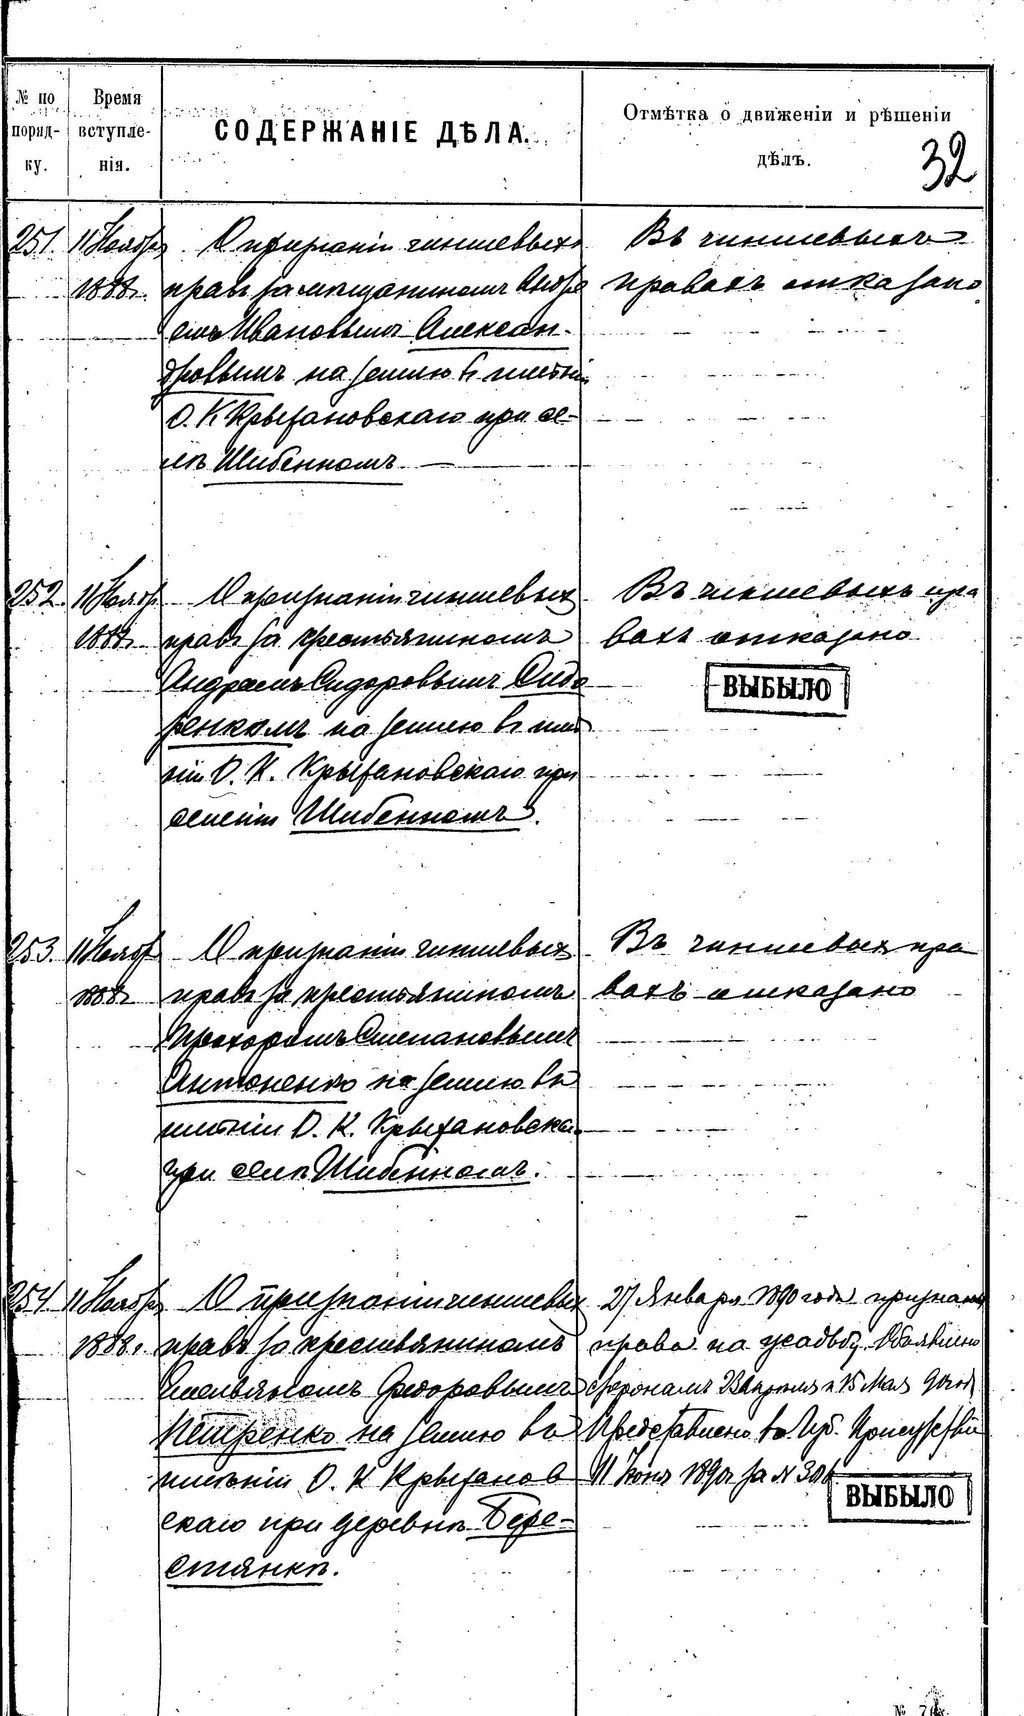 № по поряд- ку.
Время вступле- нія.
СОДЕРЖАНІЕ ДѢЛА.
Отмѣтка о движеніи и рѣшеніи дѣлъ.
32
251. 11 Ноябр 1888г.
О признаніи чиншевыхъ
правъ за мещаниномъ Андре
емъ Ивановымъ Алексан-
дровымъ на землю в имѣніи
О. К. Крыжановскаго при се-
лѣ Шибенномъ
Въ чиншевыхъ
правахъ отказано
252. 11 Ноябр 1888г.
О признаніи чиншевых
правъ за крестьяниномъ
Андреемъ Сидоровымъ Сидо
ренкомъ на землю в имѣ
ніи О. К. Крыжановскаго при
селеніи Шибенномъ.
Въ чиншевыхъ пра
вахъ отказано
ВЫБЫЛО
253. 11 Ноябр 1888г
О признаніи чиншевых
правъ за крестьяниномъ
Прохоромъ Степановымъ
Антоненко на землю въ
имѣніи О. К. Крыжановска
при селѣ Шибенномъ.
Въ чиншевыхъ пра
вахъ отказано
254. 11 Ноябр 1888г.
О признаніи чиншевых
правъ за крестьяниномъ
Емельяномъ Федоровымъ
Петренко на землю въ
имѣніи О. К. Крыжанов
скаго при деревнѣ Бере-
стянкѣ.
27 Января 1890 года признаны
права на усадьбу. Объявлено
сторонамъ 23 Апреля и 15 Мая 90 год
Представлено въ Губ. Присутствіе
11 Іюня 1890г за №
ВЫБЫЛО